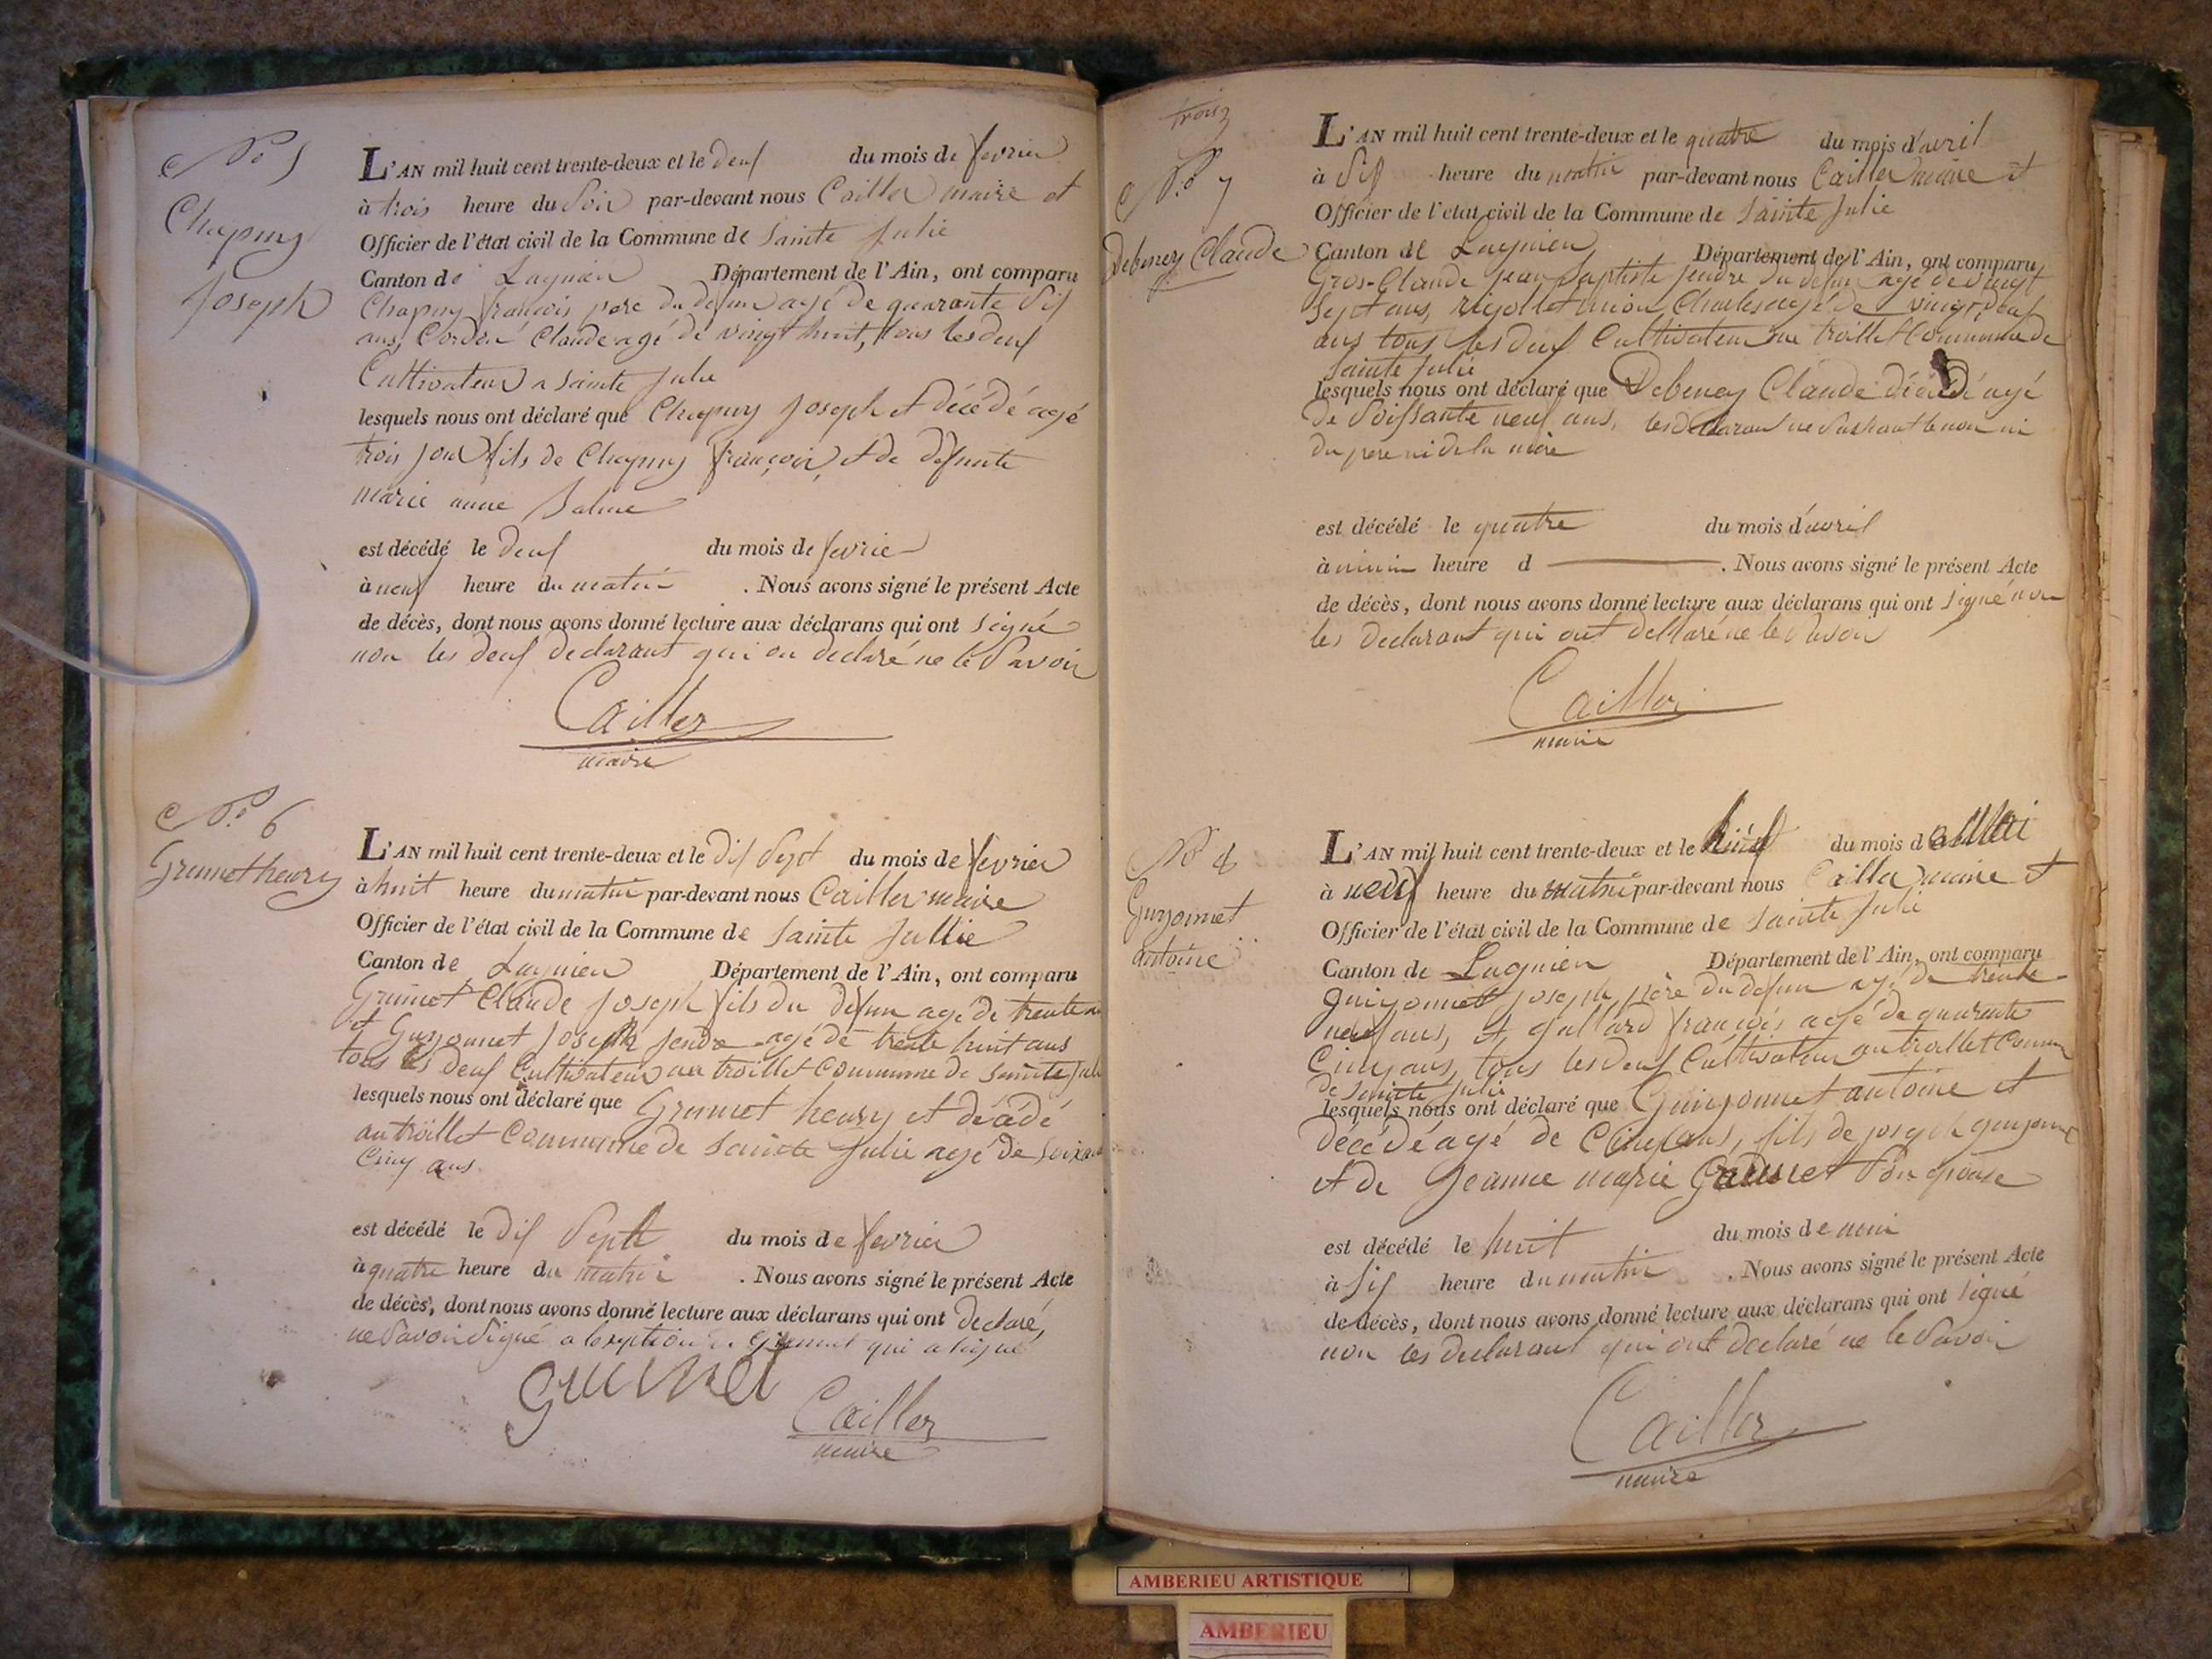 N° 5
Chapuy
Joseph
L'AN mil huit cent trente-deux et le deux du mois de fevrier
à trois heure du Soir par-devant nous Cailler maire et
Officier de l'état civil de la Commune de Sainte Julie
Canton de Lagnieu Département de l'Ain, ont comparu
Chapuy françois pere du defun agé de quarante Six
ans, Cordon Claude agé de vingt huit, tous les deux
Cultivateur a Sainte Julie
lesquels nous ont déclaré que Chapuy Joseph et décédé agé
trois jour fils de Chapuy françois, et de defunte
marie anne
est décédé le deux du mois de fevrier
à neuf heure du matin . Nous avons signé le présent Acte
de décès, dont nous avons donné lecture aux déclarans qui ont Signé
non les deux declarant qui on declaré ne le Savoir
Cailler
maire
N° 6
Grumet henry
L'AN mil huit cent trente-deux et le dix Sept du mois de fevrier
à huit heure du matin par-devant nous Cailler maire
Officier de l'état civil de la Commune de Sainte Jullie
Canton de Lagnieu Département de l'Ain, ont comparu
Grumet Claude Joseph fils du defun agé de trente
et Guyonnet Joseph jendre agé de trente huit ans
tous les deux Cultivateur au trollet Commune de Sainte
lesquels nous ont déclaré que Grumet henry et décédé
au trollet Commune de Sainte Julie agé de
Cinq ans
est décédé le dix Sept du mois de fevrier
à quatre heure du matin . Nous avons signé le présent Acte
de décès, dont nous avons donné lecture aux déclarans qui ont declaré,
ne Savoir Signé a grumet qui a signé
grumet
Cailler
maire
trois
N° 7
Debeney Claude
L'AN mil huit cent trente-deux et le quatre du mois d'avril
à Six heure du matin par-devant nous Cailler maire et
Officier de l'état civil de la Commune de Sainte Julie
Canton de Lagnieu Département de l'Ain, ont comparu
Gros-Claude jean Baptiste jendre du defun agé de vingt
Sept ans, Charles agé de vingt deux
ans tous les deux Cultivateur au trollet Commune de
Sainte Julie
lesquels nous ont déclaré que Debeney Claude décédé agé
de Soissante neuf ans, les declarant ne Sachant le nom ni
du pere ni de la mère
est décédé le quatre du mois d'avril
à heure d . Nous avons signé le présent Acte
de décès, dont nous avons donné lecture aux déclarans qui ont signé non
les declarant qui ont dellaré ne le
Cailler
maire
N° 8
Guyonnet
antoine
L'AN mil huit cent trente-deux et le huit du mois de mai
à neuf heure du matin par-devant nous Cailler maire et
Officier de l'état civil de la Commune de Sainte Julie
Canton de Lagnieu Département de l'Ain, ont comparu
guiyonnet joseph père du defun agé de trente
neuf ans, et gallard françois agé de quarante
Cinq ans, tous les deux Cultivateur au trollet
de Sainte Julie
lesquels nous ont déclaré que Guiyonnet antoine et
décédé agé de Cinq ans, fils de joseph
et de Jeanne marie Grumet Son épouse
est décédé le huit du mois de mai
à Six heure du matin . Nous avons signé le présent Acte
de décès, dont nous avons donné lecture aux déclarans qui ont signé
non les declarant qui ont declaré ne le Savoir
Cailler
maire
AMBERIEU ARTISTIQUE
AMBERIEU